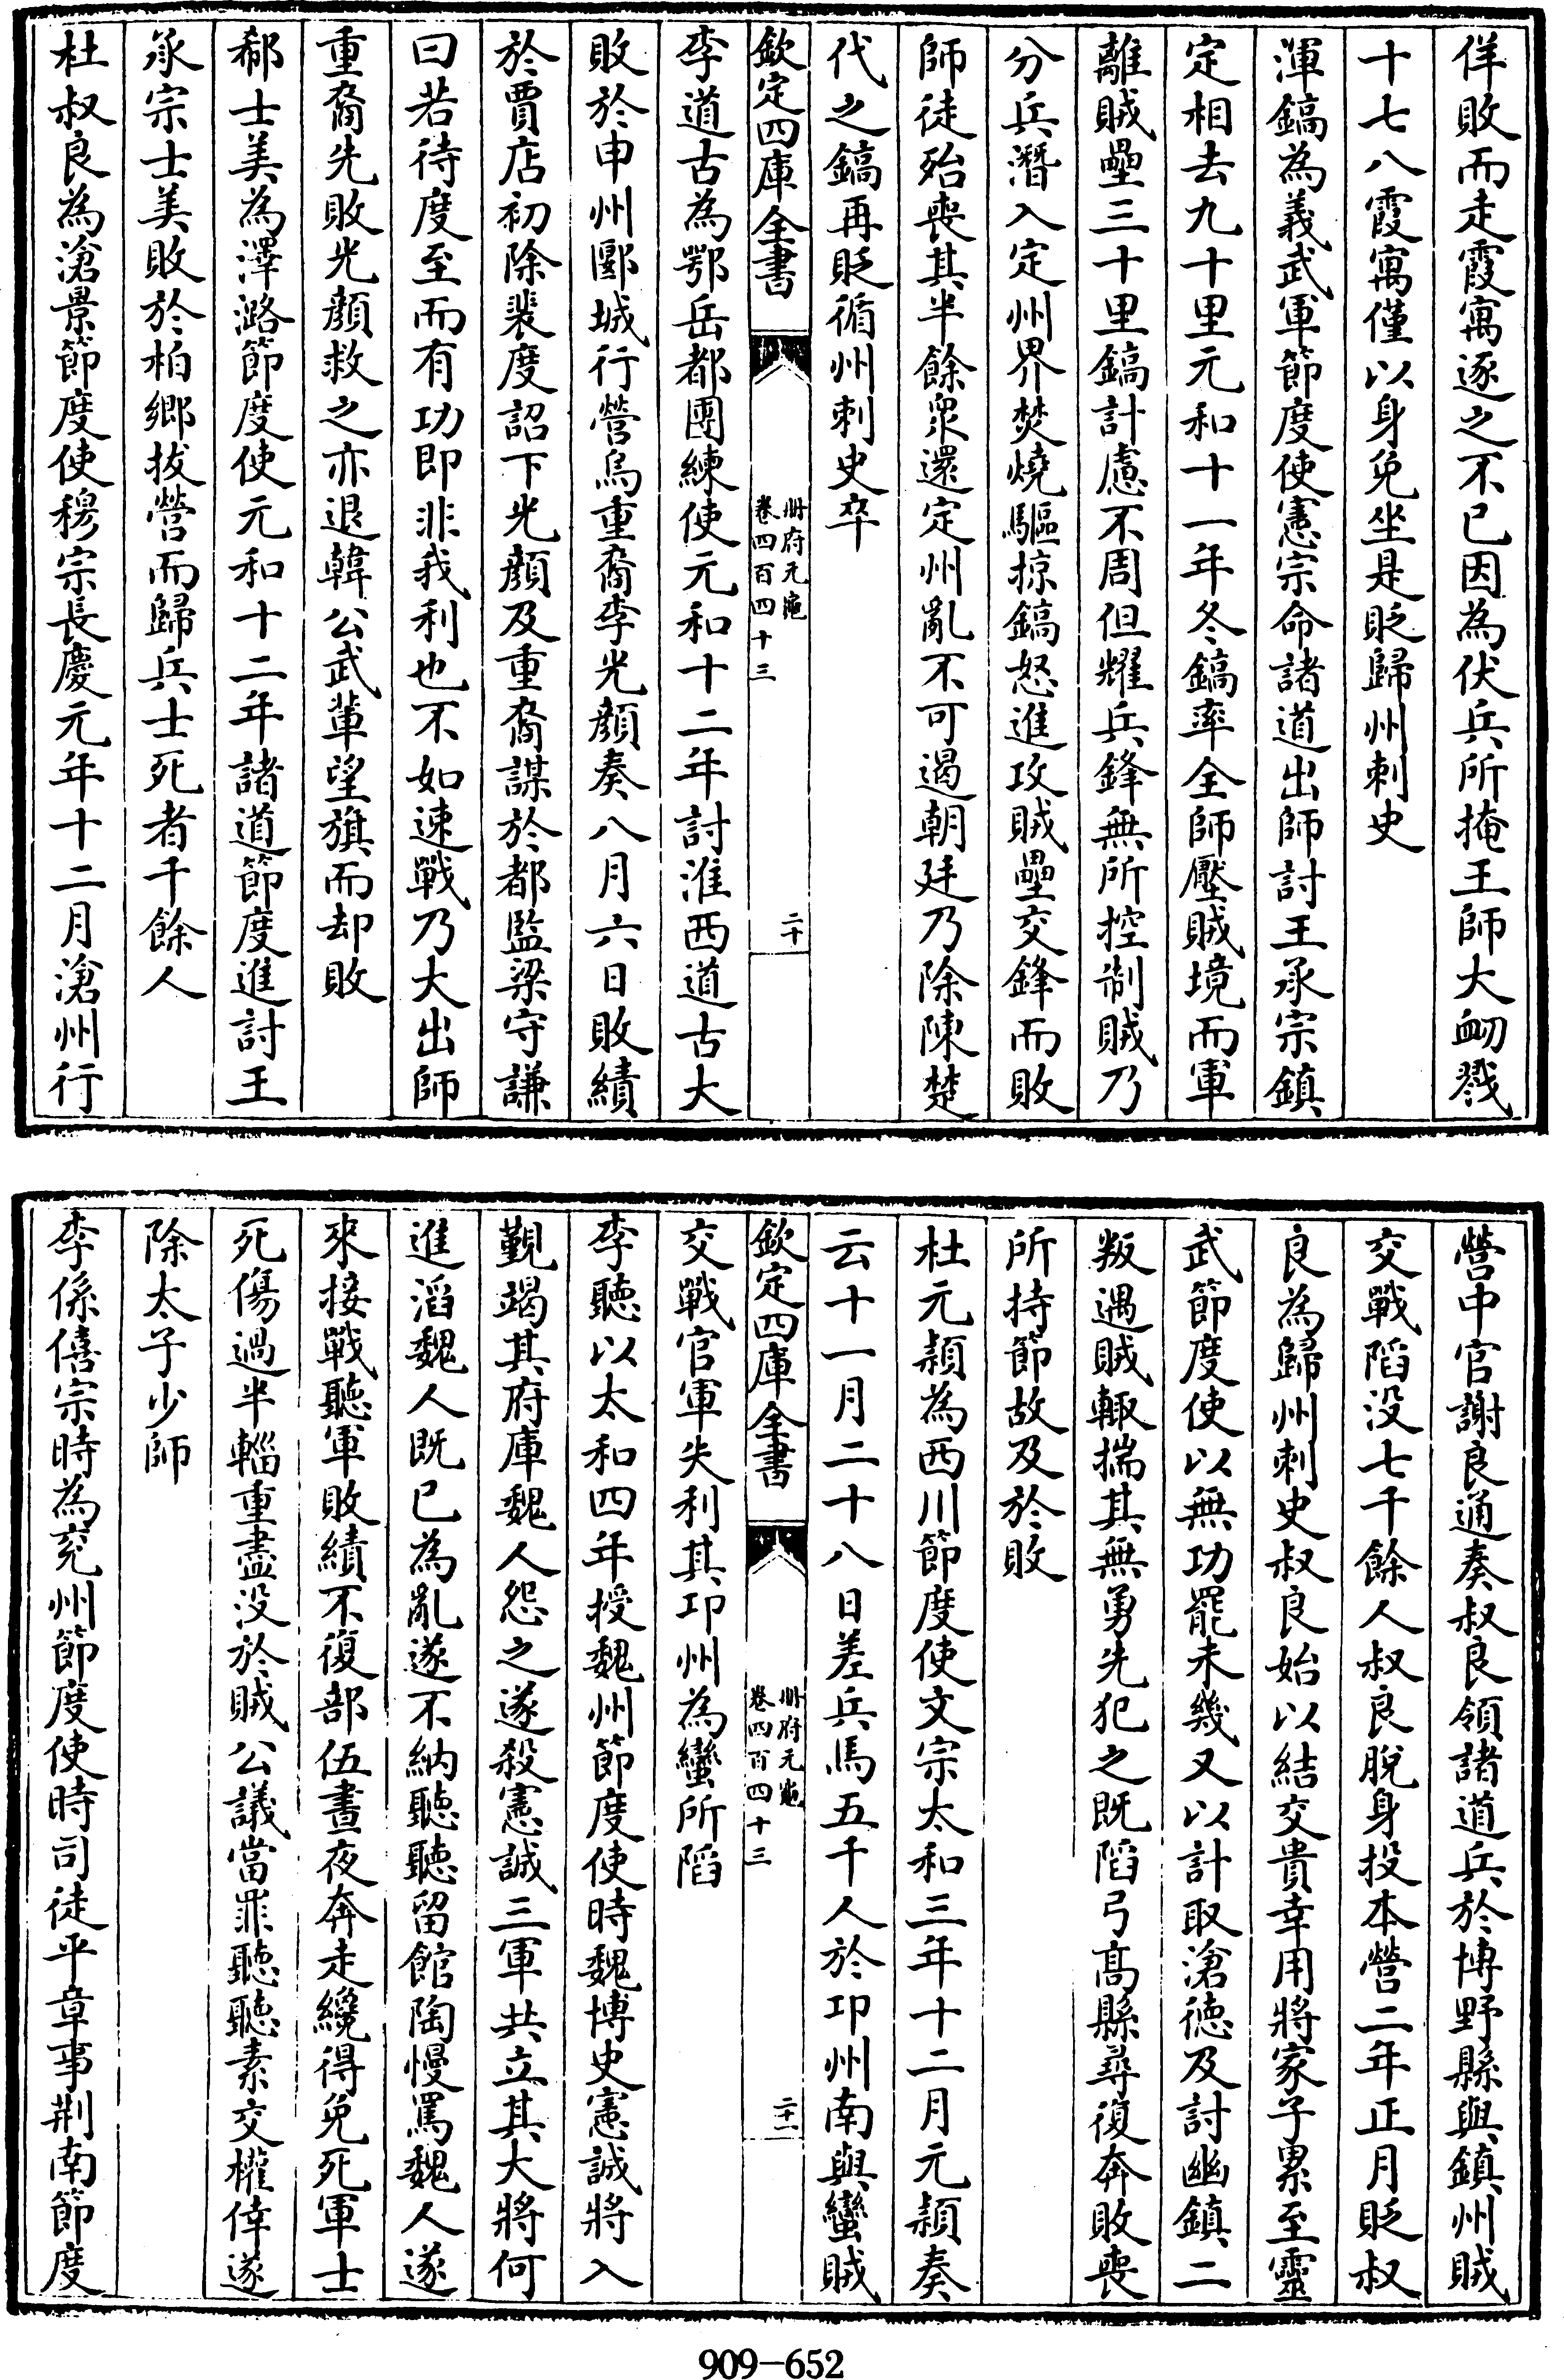 佯敗而走霞寓逐之不已因為伏兵所掩王師大衂戮
十七八霞寓僅以身免坐是貶歸州刺史
渾鎬為義武軍節度使憲宗命諸道出師討王承宗鎮
定相去九十里元和十一年冬鎬率全師壓賊境而軍
離賊壘三十里鎬計慮不周但耀兵鋒無所控制賊乃
分兵潛入定州界焚燒驅掠鎬怒進攻賊壘交鋒而敗
師徒殆喪其半餘衆還定州亂不可遏朝廷乃除陳楚
代之鎬再貶循州刺史卒
欽定四庫全書
册府元龜
卷四百四十三
二十
李道古為鄂岳都團練使元和十二年討淮西道古大
敗於申州郾城行營烏重裔李光顔奏八月六日敗績
於賈店初除裴度詔下光顔及重裔謀於都監梁守謙
曰若待度至而有功即非我利也不如速戰乃大出師
重裔先敗光顔救之亦退韓公武軰望旗而却敗
郗士美為澤潞節度使元和十二年諸道節度進討王
承宗士美敗於柏鄉拔營而歸兵士死者千餘人
杜叔良為滄景節度使穆宗長慶元年十二月滄州行
營中官謝良通奏叔良領諸道兵於博野縣與鎮州賊
交戰陷没七千餘人叔良脫身投本營二年正月貶叔
良為歸州刺史叔良始以結交貴幸用將家子累至靈
武節度使以無功罷未幾又以計取滄德及討幽鎮二
叛遇賊輙揣其無勇先犯之既陷弓高縣尋復奔敗喪
所持節故及於敗
杜元穎為西川節度使文宗太和三年十二月元穎奏
云十一月二十八日差兵馬五千人於卭州南與蠻賊
欽定四庫全書
册府元龜
卷四百四十三
二十一
交戰官軍失利其卭州為蠻所陷
李聽以太和四年授魏州節度使時魏博史憲誠將入
覲竭其府庫魏人怨之遂殺憲誠三軍共立其大將何
進滔魏人既已為亂遂不納聽聽留館陶慢罵魏人遂
來接戰聽軍敗績不復部伍晝夜奔走纔得免死軍士
死傷過半輜重盡没於賊公議當罪聽聽素交權倖遂
除太子少師
李係僖宗時為兖州節度使時司徒平章事荆南節度
909-652